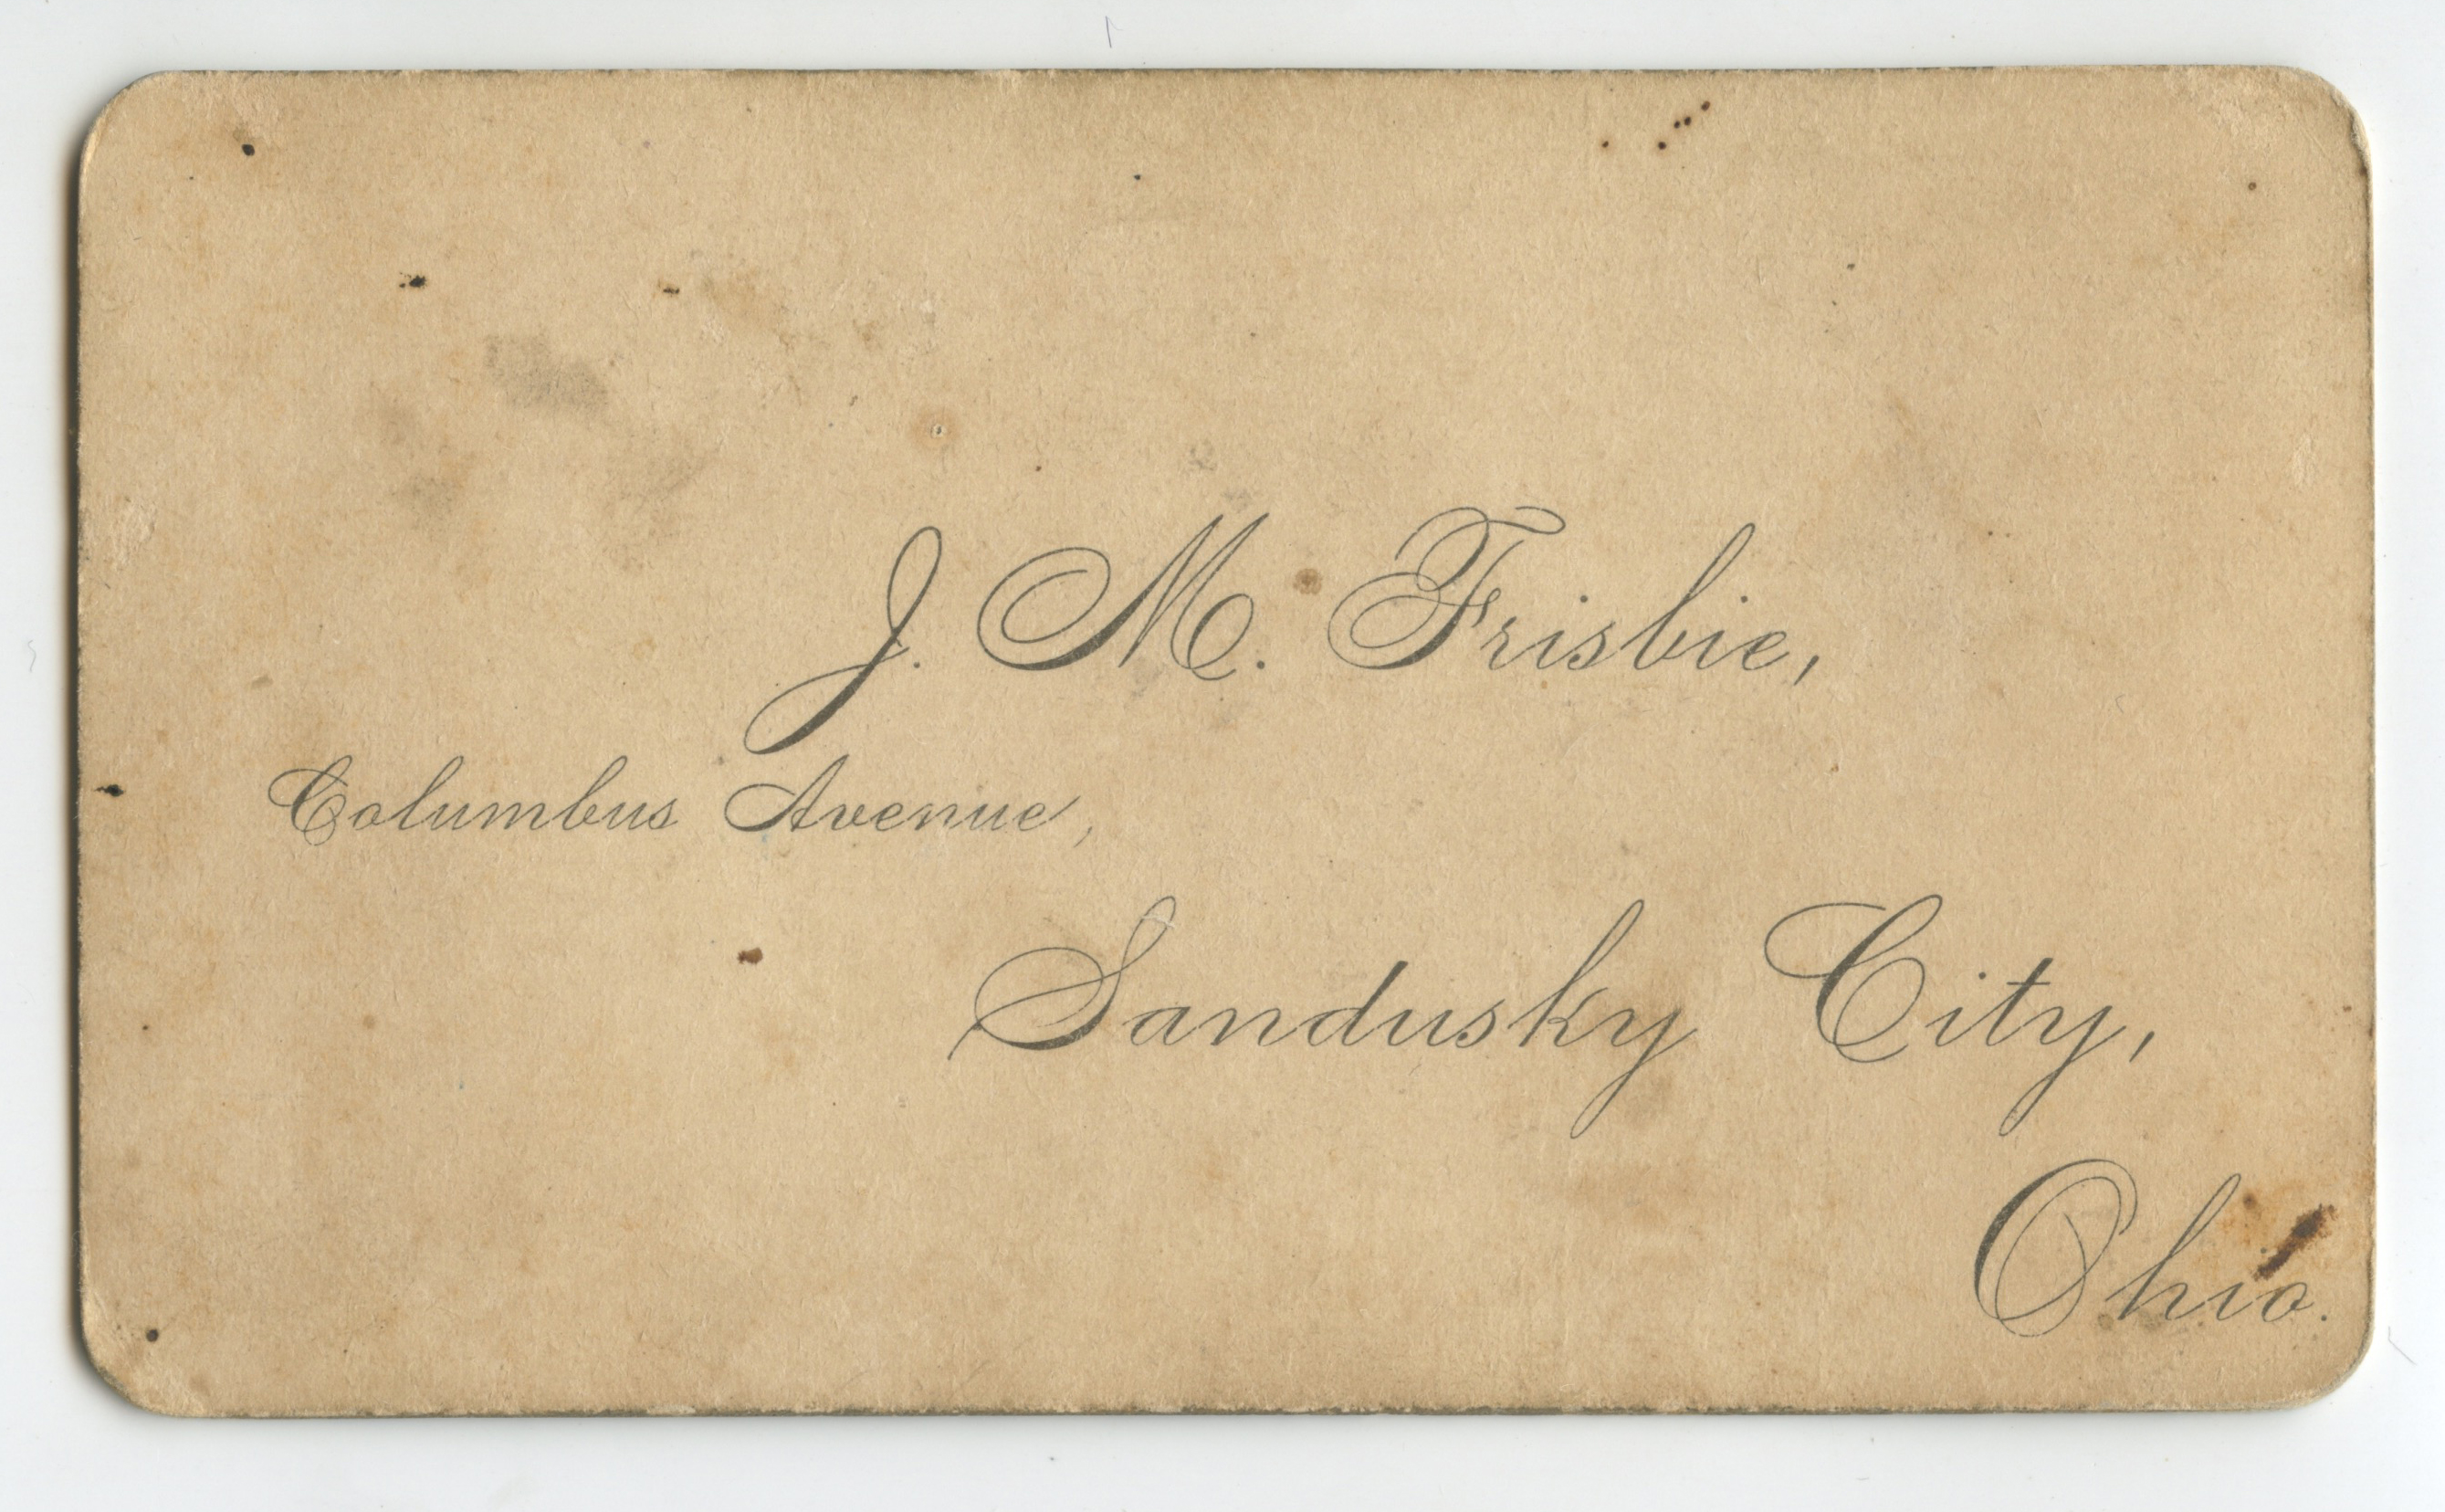 J. M. Frisbie,
Columbus Avenue,
Sandusky City,
Ohio.